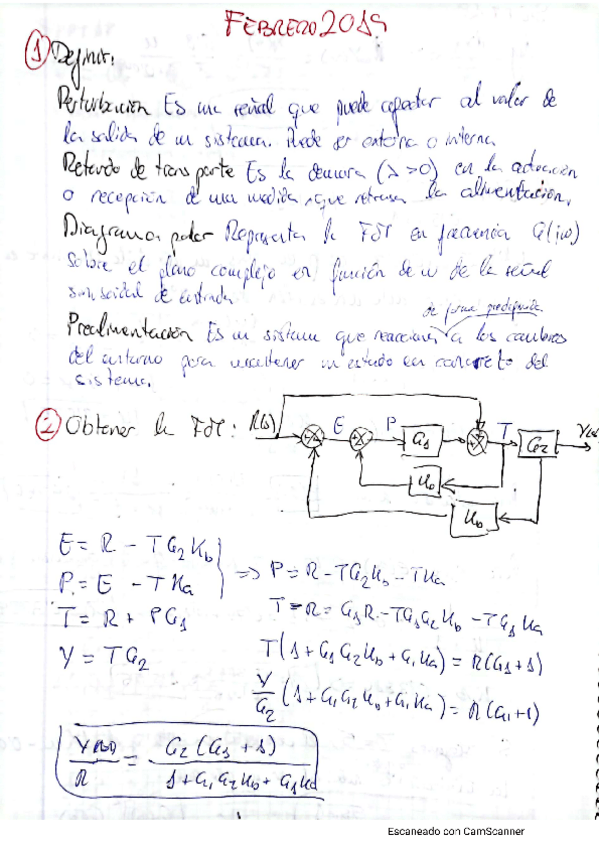 FEBRERO 2019
① Definir:
Perturbación Es una señal que puede afectar al valor de
la salida de un sistema. Puede ser externa o interna
Retardo de transporte Es la demora (λ>0) en la actuación
o recepción de una medida, que retrasa la alimentación.
Diagrama polar Representa la FdT en frecuencia G(jω)
sobre el plano complejo en función de ω de la señal
sinusoidal de entrada.
de forma predefinida
Prealimentación Es un sistema que reacciona a los cambios
del entorno para mantener un estado en concreto del
sistema.
② Obtener la FdT: R(s) E P G1 T G2 Y(s)
Ha
Hb
E = R - TG2Hb
P = E - THa => P = R - TG2Hb - THa
T = R + PG1 T - R = G1R - TG1G2Hb - TG1Ha
Y = TG2 T(1+G1G2Hb+G1Ha) = R(G1+1)
Y/G2 (1+G1G2Hb+G1Ha) = R(G1+1)
Y/R = G2(G1+1) / 1+G1G2Hb+G1Ha
Escaneado con CamScanner